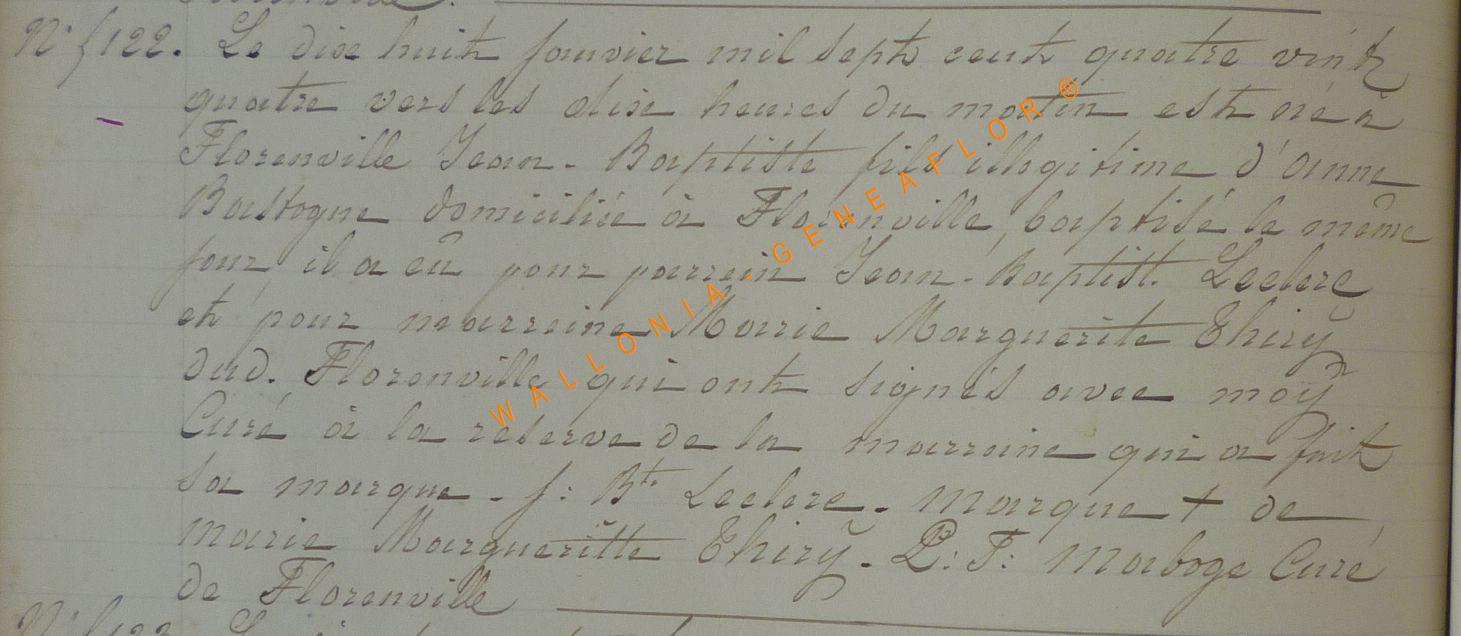 Florenville.
N° 122. Le dixe huit janvier mil sept cent quatre vintz
quatre vers les dixe heures du matin est né à
Florenville Jean-Baptiste fils illegitime d'anne
Bastogne domiciliée à Florenville, baptisé le même
jour il a eû pour parrein Jean-Baptist. Leclerc
et pour marreine Marie Marguerite Thirÿ
dud. Florenville qui ont signés avec moÿ
Curé à la reserve de la marraine qui a fait
sa marque - j: Bte Leclerc - marque + de
marie Margueritte Thirÿ - P: F: Maboge Curé
de Florenville
WALLONIA - GENEAFLOR ®